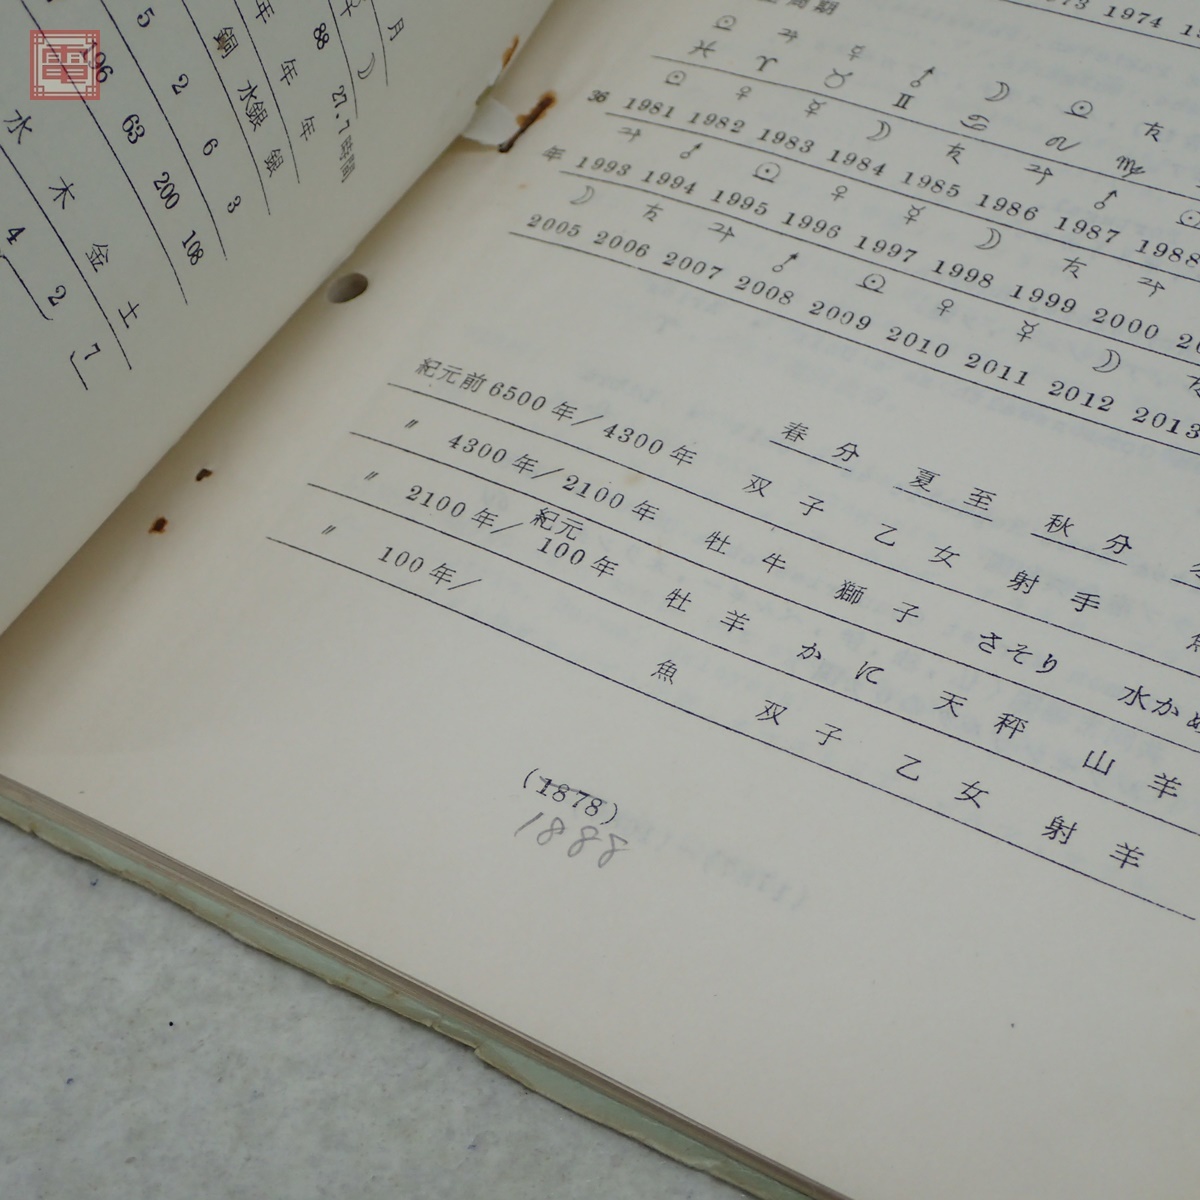 電
月 ☽
88 27.7時間
年 年 年
銅 水銀 銀
5 2 6 3
196 63 200 108
水 木 金 土
4 2 7
周期
1973 1974
☉ ♃ ☿ ♂ ☽ ☉ 友
♓ ♈ ♉ Ⅱ ♋ ♌ ♍
☉ ♀ ☿ ☽ 友 ♃ ♂ ☉
36 1981 1982 1983 1984 1985 1986 1987 1988
♃ ♂ ☉ ♀ ☿ ☽ 友 ♃
年 1993 1994 1995 1996 1997 1998 1999 2000
☽ 友 ♃ ♂ ☉ ♀ ☿ ☽
2005 2006 2007 2008 2009 2010 2011 2012 2013
春分 夏至 秋分
紀元前6500年/4300年 双子 乙女 射手
〃 4300年/2100年 牡牛 獅子 さそり 水かめ
〃 2100年/紀元100年 牡羊 かに 天秤 山羊
〃 100年/ 魚 双子 乙女 射羊
(1878)
1888